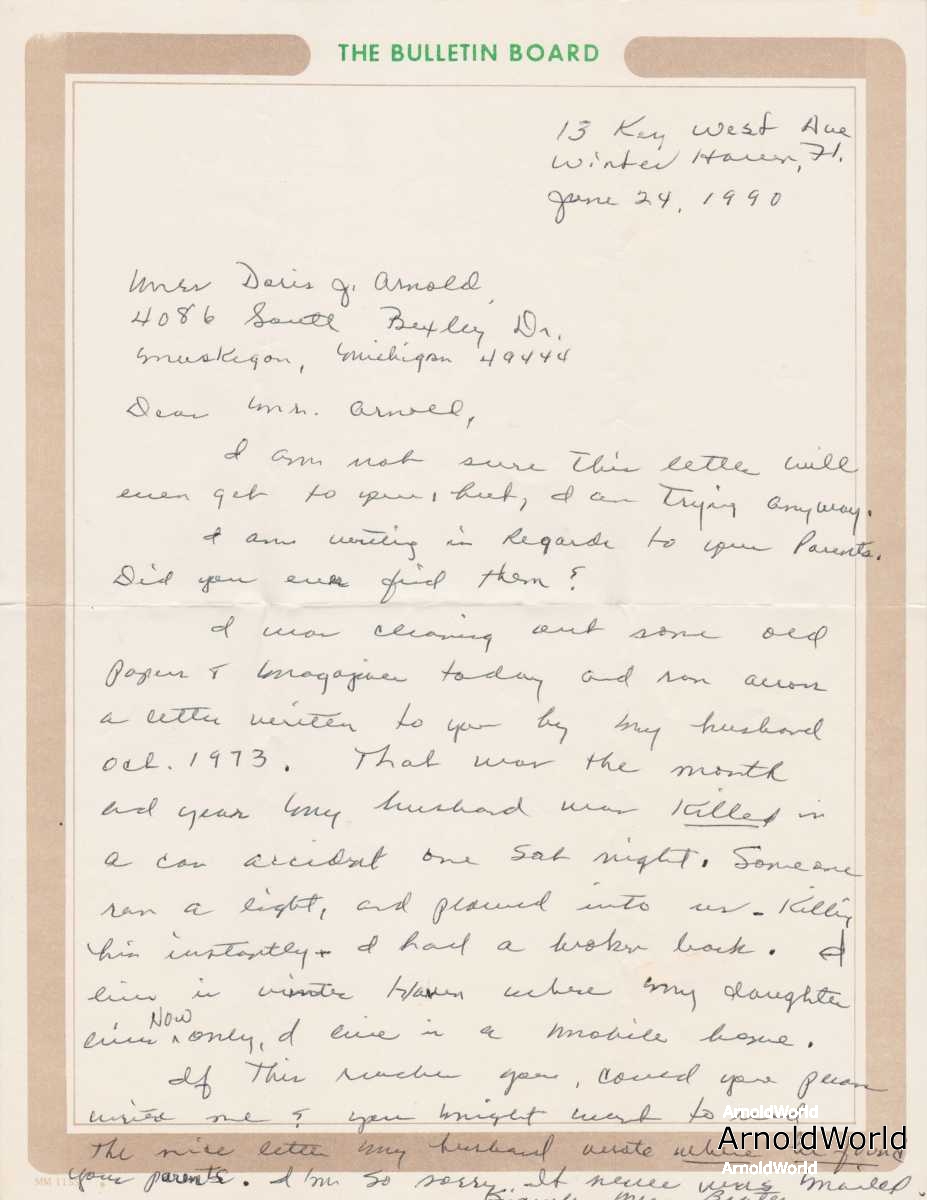 THE BULLETIN BOARD
13 Key West Ave
Winter Haven, Fl.
June 24, 1990
Mrs Doris J. Arnold,
4086 South Bexley Dr.
Muskegon, Michigan 49444
Dear Mrs. Arnold,
I am not sure This letter will
even get to you, but, I am Trying anyway.
I am writing in Regards to your Parents.
Did you ever find them?
I was cleaning out some old
papers & Magazines today and ran across
a letter written to you by my husband
Oct. 1973. That was the month
and year my husband was Killed in
a car accident one Sat night. Someone
ran a light, and plowed into us - Killing
him instantly & I had a broken back. I
live in Winter Haven where my daughter
Now
lives only, I live in a Mobile home.
If This reaches you, could you please
write me & you might want to
The nice letter my husband wrote where he found
your parents. I'm So sorry It never was Mailed
MM 11
ArnoldWorld
ArnoldWorld
ArnoldWorld